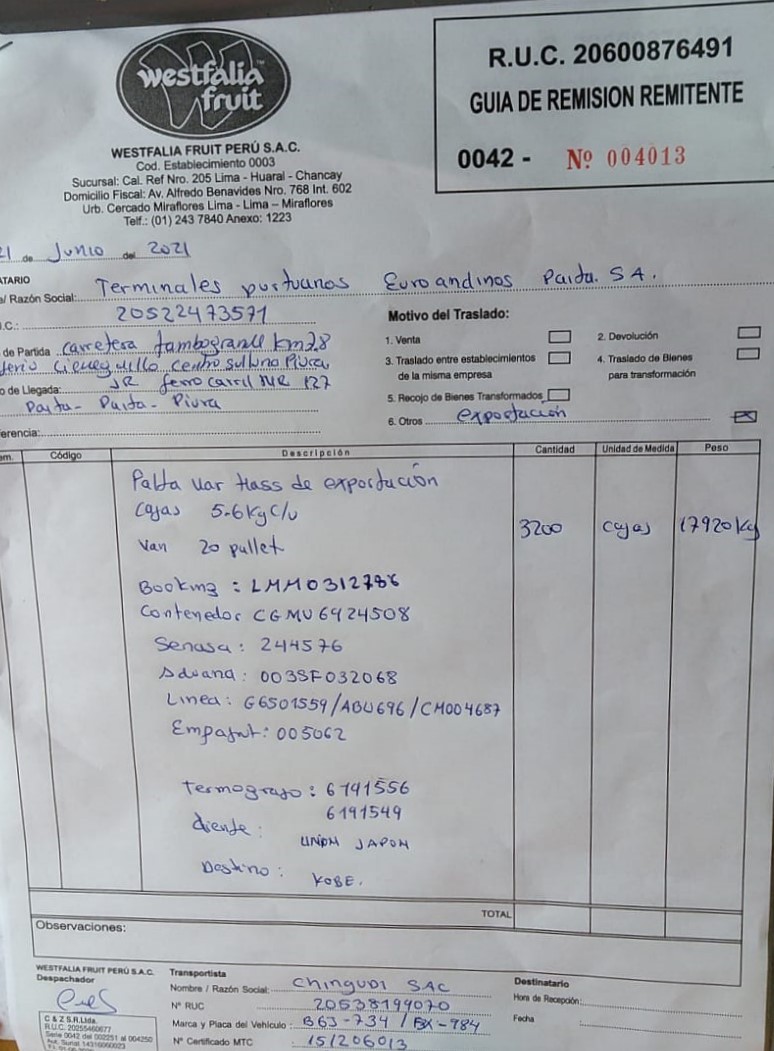 westfalia
fruit
WESTFALIA FRUIT PERÚ S.A.C.
Cod. Establecimiento 0003
Sucursal: Cal. Ref Nro. 205 Lima - Huaral - Chancay
Domicilio Fiscal: Av. Alfredo Benavides Nro. 768 Int. 602
Urb. Cercado Miraflores Lima - Lima – Miraflores
Telf.: (01) 243 7840 Anexo: 1223
R.U.C. 20600876491
GUIA DE REMISION REMITENTE
0042 - Nº 004013
21 de Junio del 2021
ATARIO
/ Razón Social: Terminales portuarios Euroandinos Paita. S.A.
.C.: 20522473571
de Partida carretera tambogrande Km 28
centro sullana Piura
o de Llegada: JR ferrocarril NR 127
Paita - Paita - Piura
ferencia:
Motivo del Traslado:
1. Venta
2. Devolución
3. Traslado entre establecimientos de la misma empresa
4. Traslado de Bienes para transformación
5. Recojo de Bienes Transformados
6. Otros exportación
em. Código Descripción Cantidad Unidad de Medida Peso
Palta var Hass de exportación
Cajas 5.6 Kg C/U
3200 cajas 17920 Kg
Van 20 pallet
Booking : LMM0312786
Contenedor CGMU6924508
Senasa : 244576
Aduana : 003SF032068
Linea : G6501559/ABU696/CM004687
005062
Termografo : 6191556
6191549
cliente :
UNION JAPON
Destino : KOBE.
TOTAL
Observaciones:
WESTFALIA FRUIT PERÚ S.A.C.
Despachador
C & Z S.R.Ltda.
R.U.C. 20255460677
Serie 0042 del 002251 al 004250
Transportista
Nombre / Razón Social: Chingudi SAC
Nº RUC 20538199070
Marca y Placa del Vehículo : B6J-734 / BX-984
Nº Certificado MTC : 151206013
Destinatario
Hora de Recepción:
Fecha